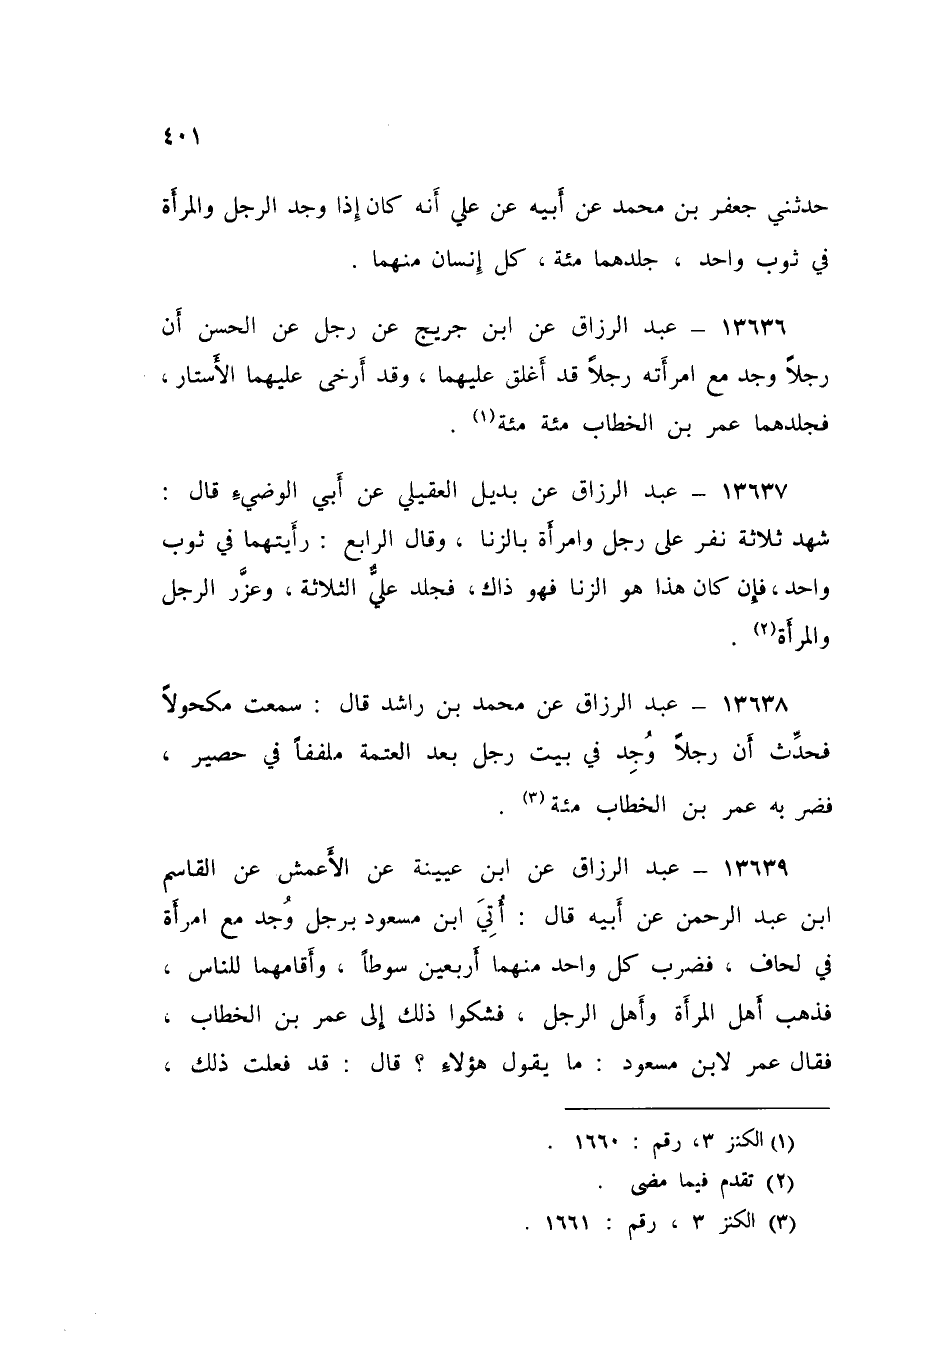 ٤٠١
حدثني جعفر بن محمد عن أَبيه عن علي أَنه كان إِذا وجد الرجل والمرأَة
في ثوب واحد ، جلدهما مئة ، كل إِنسان منهما .
١٣٦٣٦ – عبد الرزاق عن ابن جريج عن رجل عن الحسن أَن
رجلاً وجد مع امرأَته رجلاً قد أَغلق عليهما ، وقد أَرخى عليهما الأَستار ،
فجلدهما عمر بن الخطاب مئة مئة(١) .
١٣٦٣٧ – عبد الرزاق عن بديل العقيلي عن أَبي الوضيء قال :
شهد ثلاثة نفر على رجل وامرأَة بالزنا ، وقال الرابع : رأَيتهما في ثوب
واحد ، فإِن كان هذا هو الزنا فهو ذاك ، فجلد عليٌّ الثلاثة ، وعزَّر الرجل
والمرأَة(٢) .
١٣٦٣٨ – عبد الرزاق عن محمد بن راشد قال : سمعت مكحولاً
فحدَّث أَن رجلاً وُجِد في بيت رجل بعد العتمة ملففاً في حصير ،
فضر به عمر بن الخطاب مئة(٣) .
١٣٦٣٩ – عبد الرزاق عن ابن عيينة عن الأَعمش عن القاسم
ابن عبد الرحمن عن أَبيه قال : أُتِيَ ابن مسعود برجل وُجد مع امرأَة
في لحاف ، فضرب كل واحد منهما أَربعين سوطاً ، وأَقامهما للناس ،
فذهب أَهل المرأَة وأَهل الرجل ، فشكوا ذلك إِلى عمر بن الخطاب ،
فقال عمر لابن مسعود : ما يقول هؤلاء ؟ قال : قد فعلت ذلك ،
(١) الكنز ٣، رقم : ١٦٦٠ .
(٢) تقدم فيما مضى .
(٣) الكنز ٣ ، رقم : ١٦٦١ .